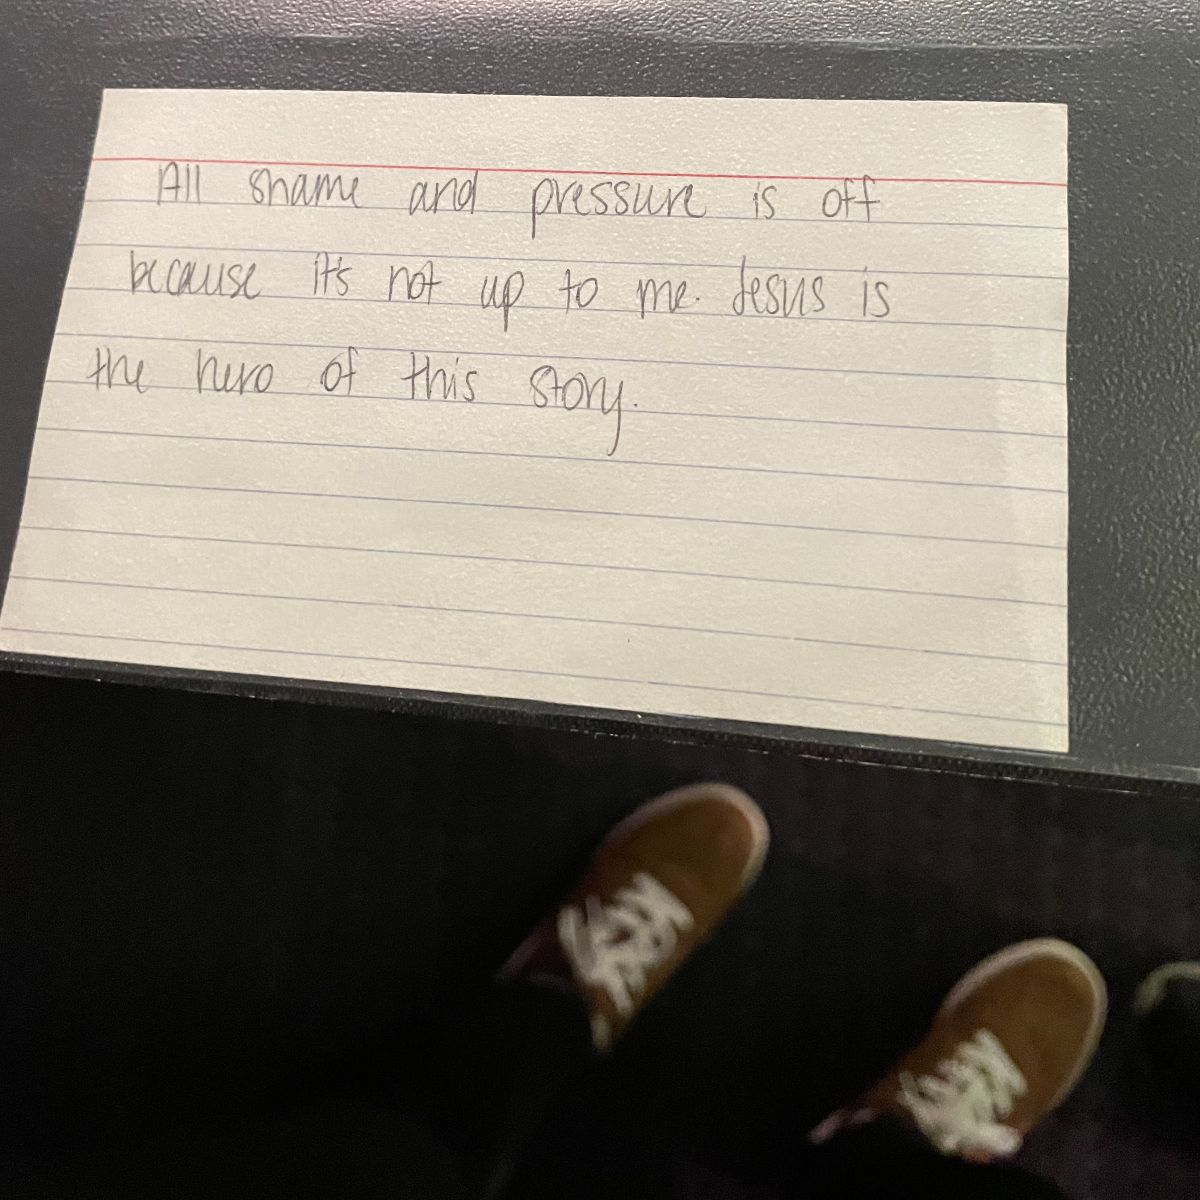 All shame and pressure is off
because it's not up to me. Jesus is
the hero of this story.